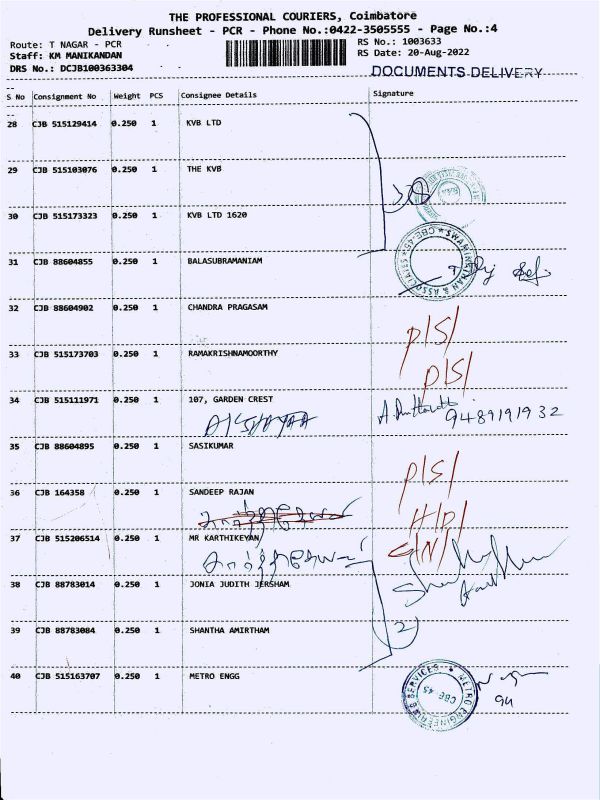 THE PROFESSIONAL COURIERS, Coimbatore
Delivery Runsheet - PCR - Phone No.:0422-3505555 - Page No.:4
Route: T NAGAR - PCR
RS No.: 1003633
Staff: KM MANIKANDAN
RS Date: 20-Aug-2022
DRS No.: DCJB100363304
DOCUMENTS DELIVERY
S No Consignment No Weight PCS Consignee Details Signature
28 CJB 515129414 0.250 1 KVB LTD
29 CJB 515103076 0.250 1 THE KVB
30 CJB 515173323 0.250 1 KVB LTD 1620
31 CJB 88604855 0.250 1 BALASUBRAMANIAM
SWAMINATHAN & ASSOCIATES CBE-45
32 CJB 88604902 0.250 1 CHANDRA PRAGASAM
D/S/
33 CJB 515173703 0.250 1 RAMAKRISHNAMOORTHY
D/S/
34 CJB 515111971 0.250 1 107, GARDEN CREST
9489191932
AKSHAYAA
35 CJB 88604895 0.250 1 SASIKUMAR
D/S/
36 CJB 164358 0.250 1 SANDEEP RAJAN
H/D/
37 CJB 515206514 0.250 1 MR KARTHIKEYAN
கார்த்திகேயன்
38 CJB 88783014 0.250 1 JONIA JUDITH JERSHAM
39 CJB 88783084 0.250 1 SHANTHA AMIRTHAM
2
40 CJB 515163707 0.250 1 METRO ENGG
METRO ENGINEERING SERVICES CBE-45